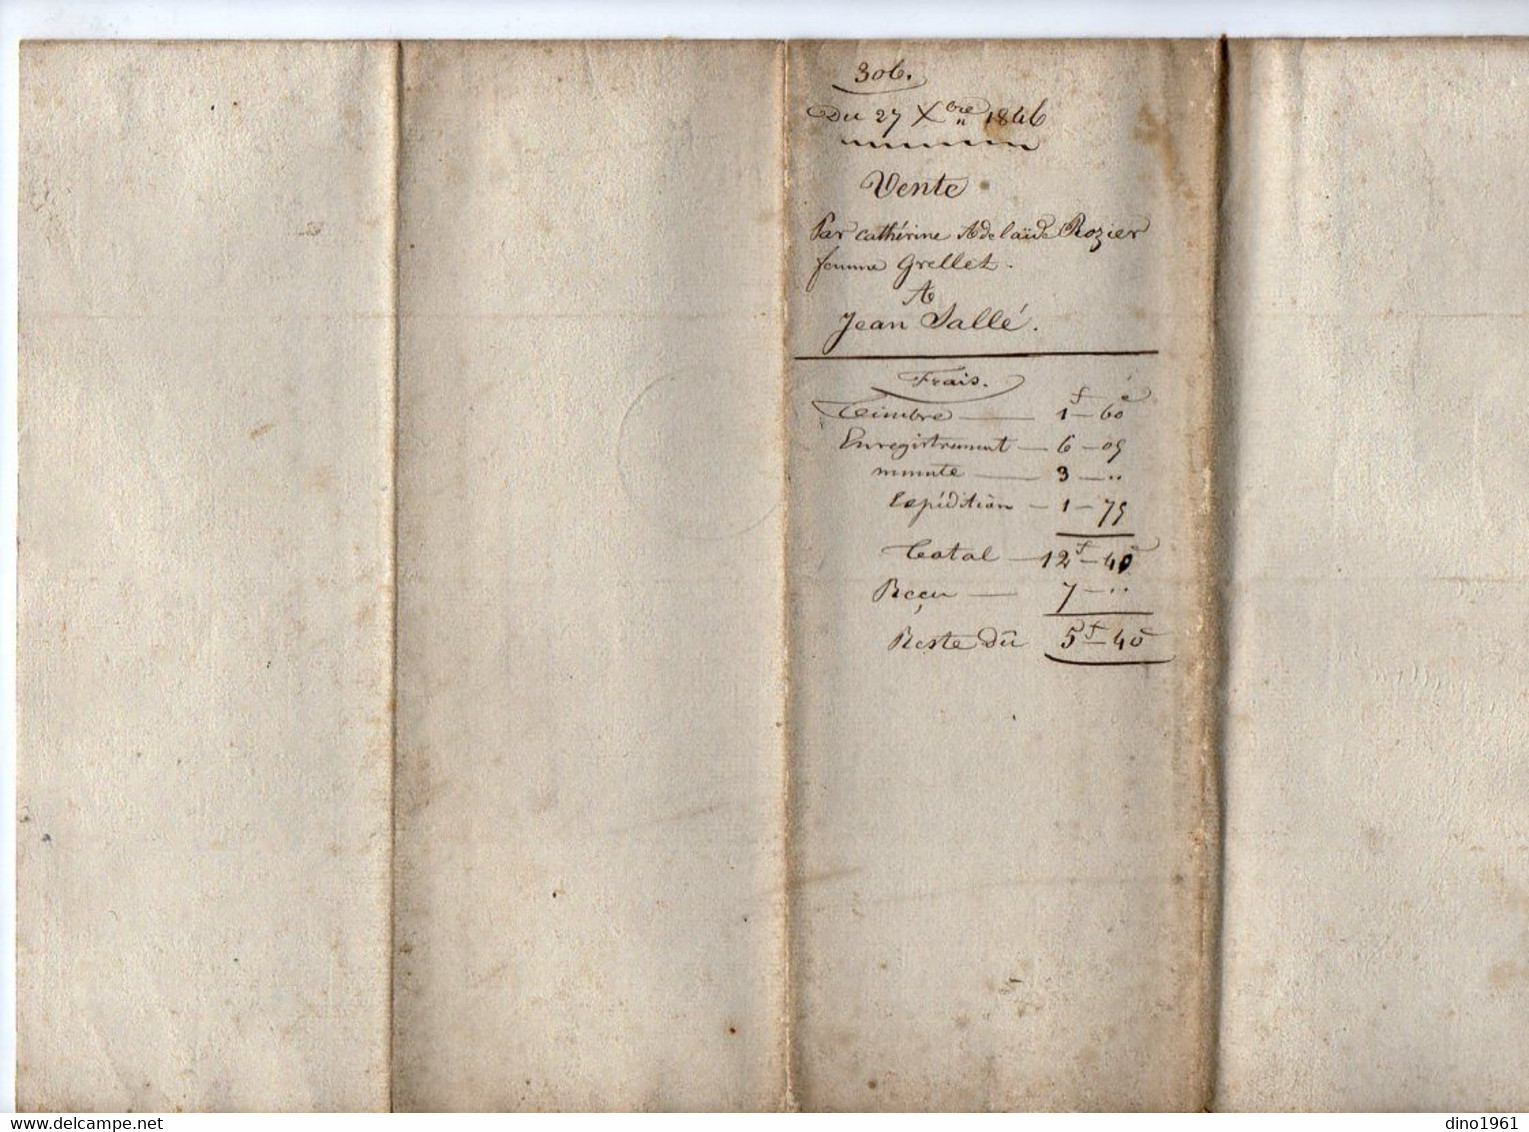 306.
Du 27 Xbre 1846
Vente
Par Cathérine Adelaïde Rozier
femme Grellet.
A
Jean Sallé.
Frais.
Teimbre — 1f — 60c
Enregistrement — 6 — 05
minute — 3 — "
Expédition — 1 — 75
Total — 12f — 40c
Reçu — 7 — "
Reste dû 5f — 40c
dino1961